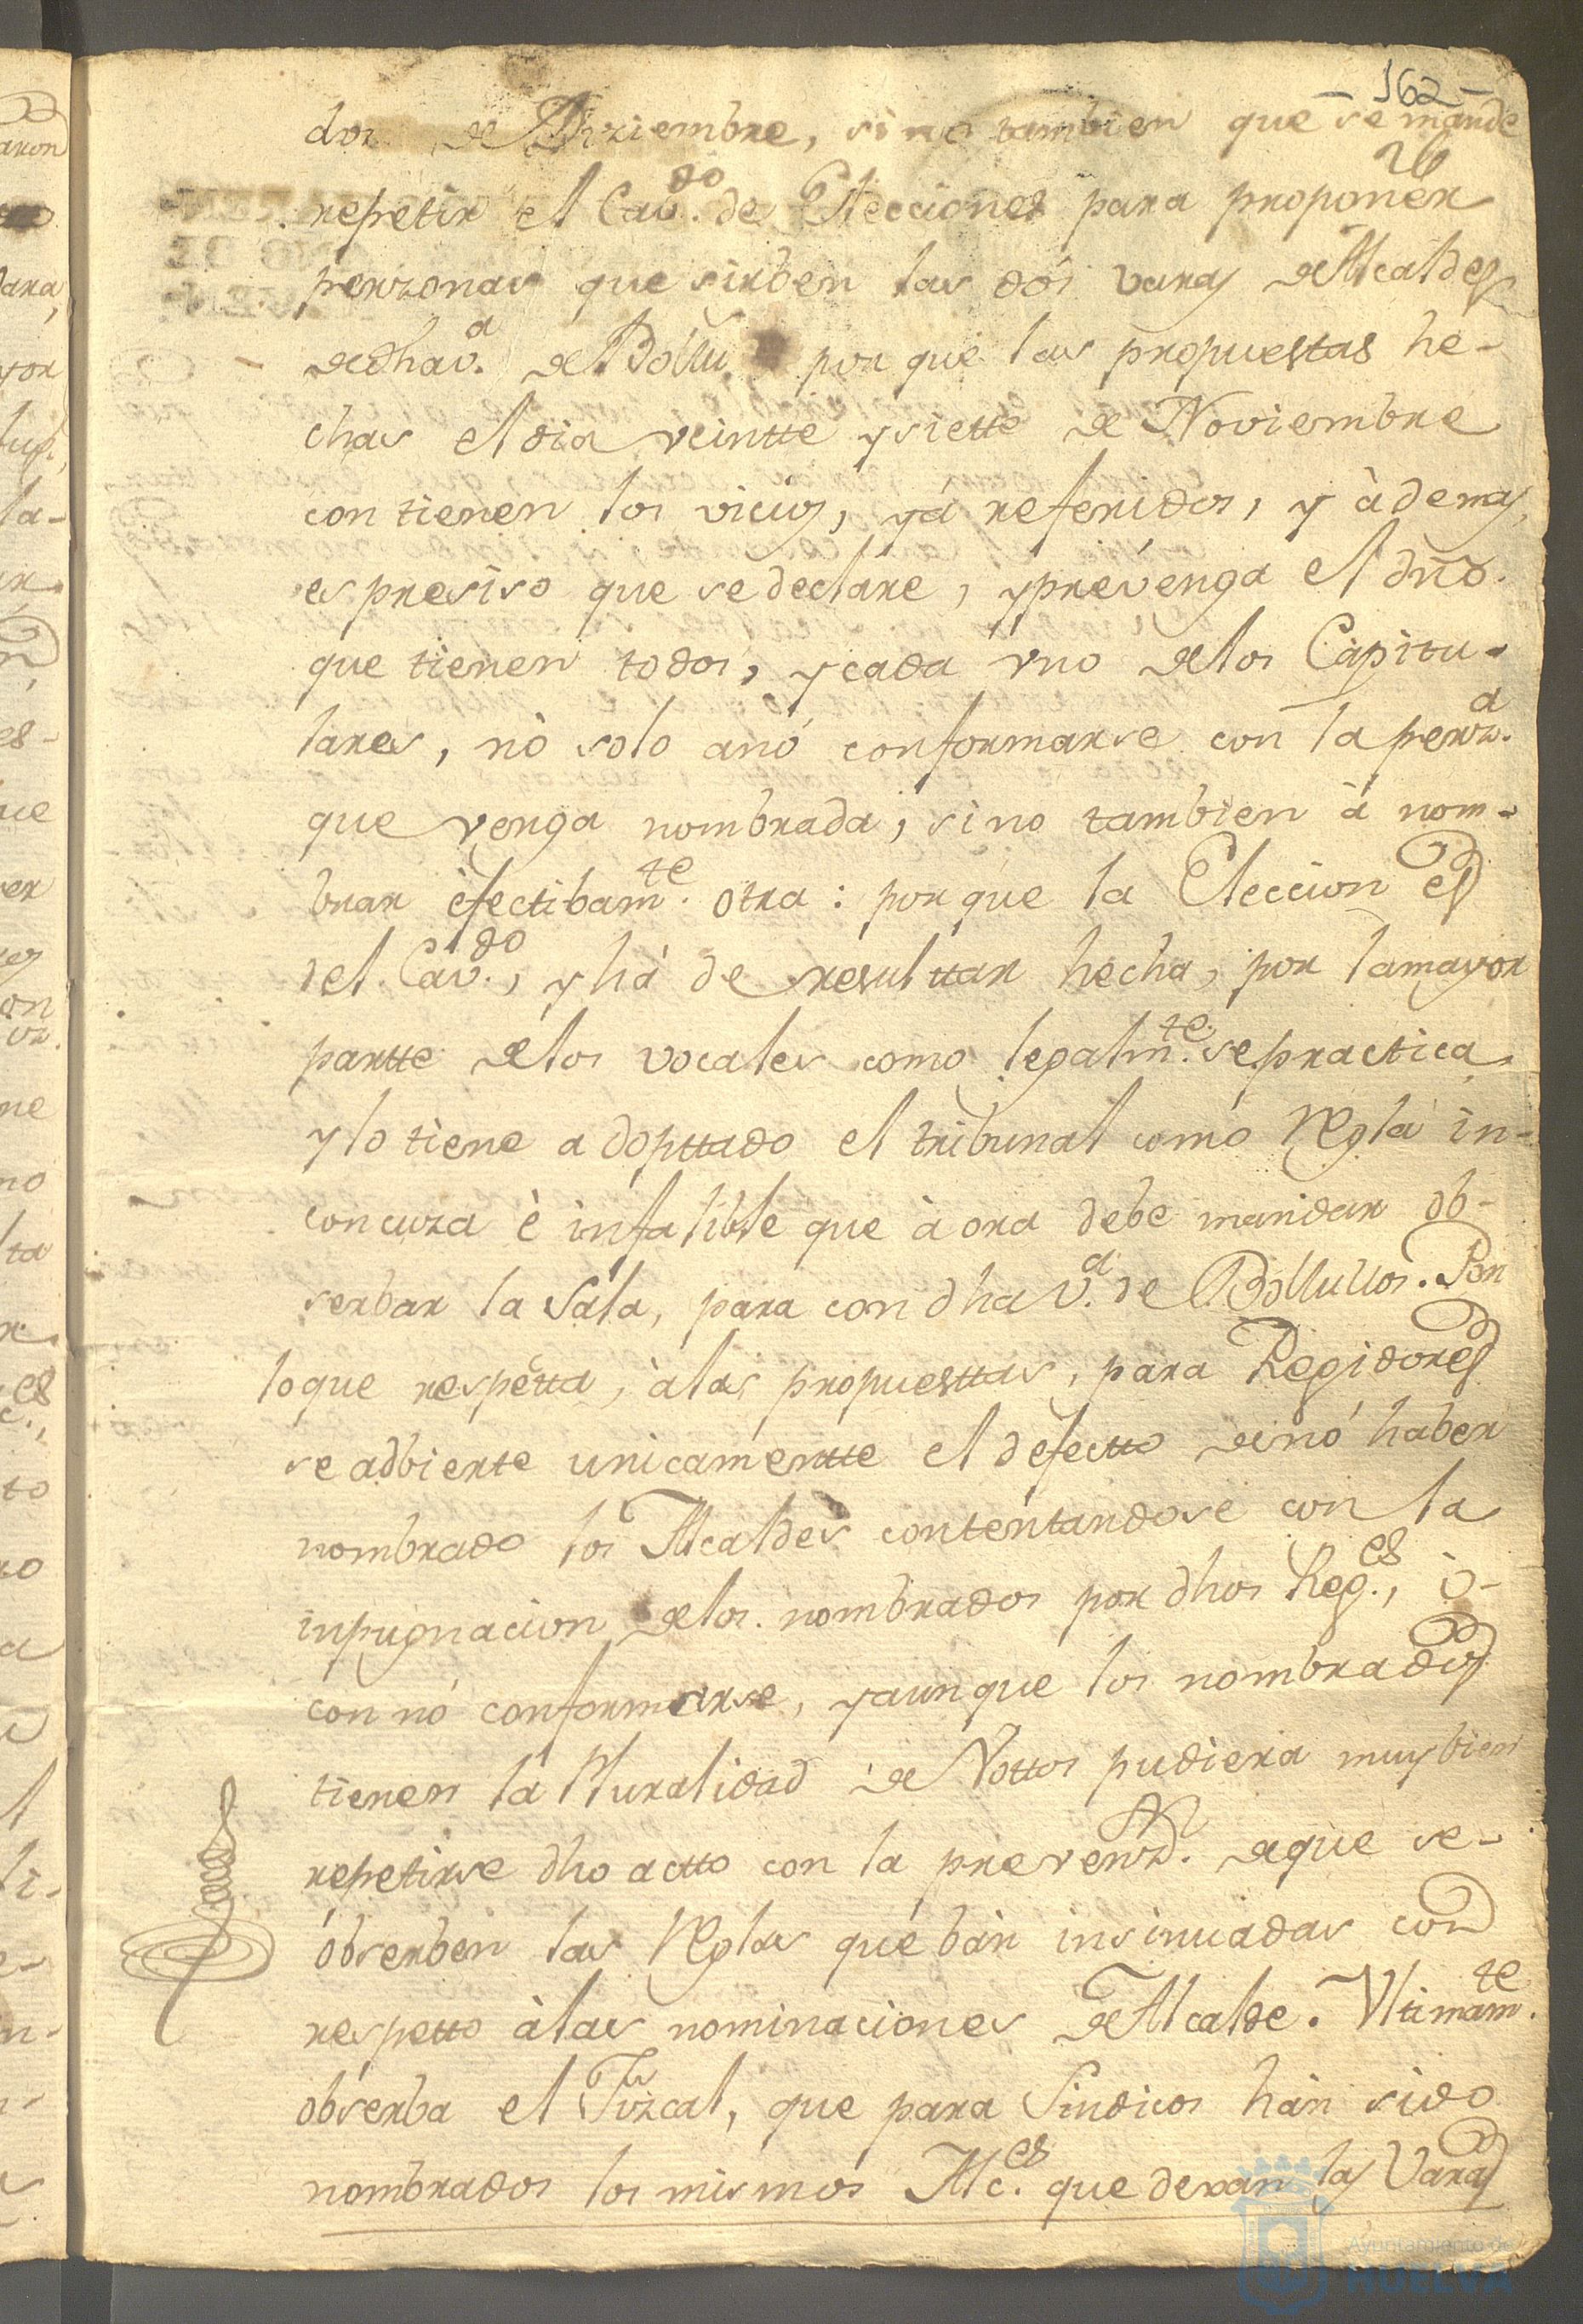 - 162 -
dos de Diziembre, sino tambien que se mande
26
repetir el Cav.do de Elecciones para proponer
perzonas que sirben las dos varas de Alcaldes
de dha v.a de Bollu. por que las propuestas he-
chas el dia veintte y siette de Noviembre
contienen los vicios, yá referidos, y àdemas,
es presiso que se declare, y prevenga el dño.
que tienen todos, y cada vno de los Capitu-
lares, nò solo anó conformarse con la perz.a
que venga nombrada, sino tambien à nom-
brar èfectibam.te otra: por que la Eleccion es
del Cav.do, y hà de resulttar hecha, por la mayor
partte de los vocales como legalm.te se practica,
y lo tiene adopttado el tribunal como Regla in-
concuza è infalible que àora debe mandar ob-
serbar la Sala, para con dha v.a de Bollullos. Por
lo que respetta, à las propuesttas, para Regidores
se adbierte unicamentte el defectto de nó haber
nombrado los Alcaldes contentandose con la
inpugnacion de los nombrados por dhos Reg.es, ò
con nó conformarse, y aunque los nombrados
tienen la Pluralidad de Vottos pudiera muy bien
repetirse dho actto con la prevenz.on de que se
obserben las Reglas que bán insinuadas con
respetto àlas nominaciones de Alcalde. Vltimam.te
obserba el Fizcal, que para Sindicos hán sido
nombrados los mismos Alc.es que dexan las Varas
Ayuntamiento de
HUELVA